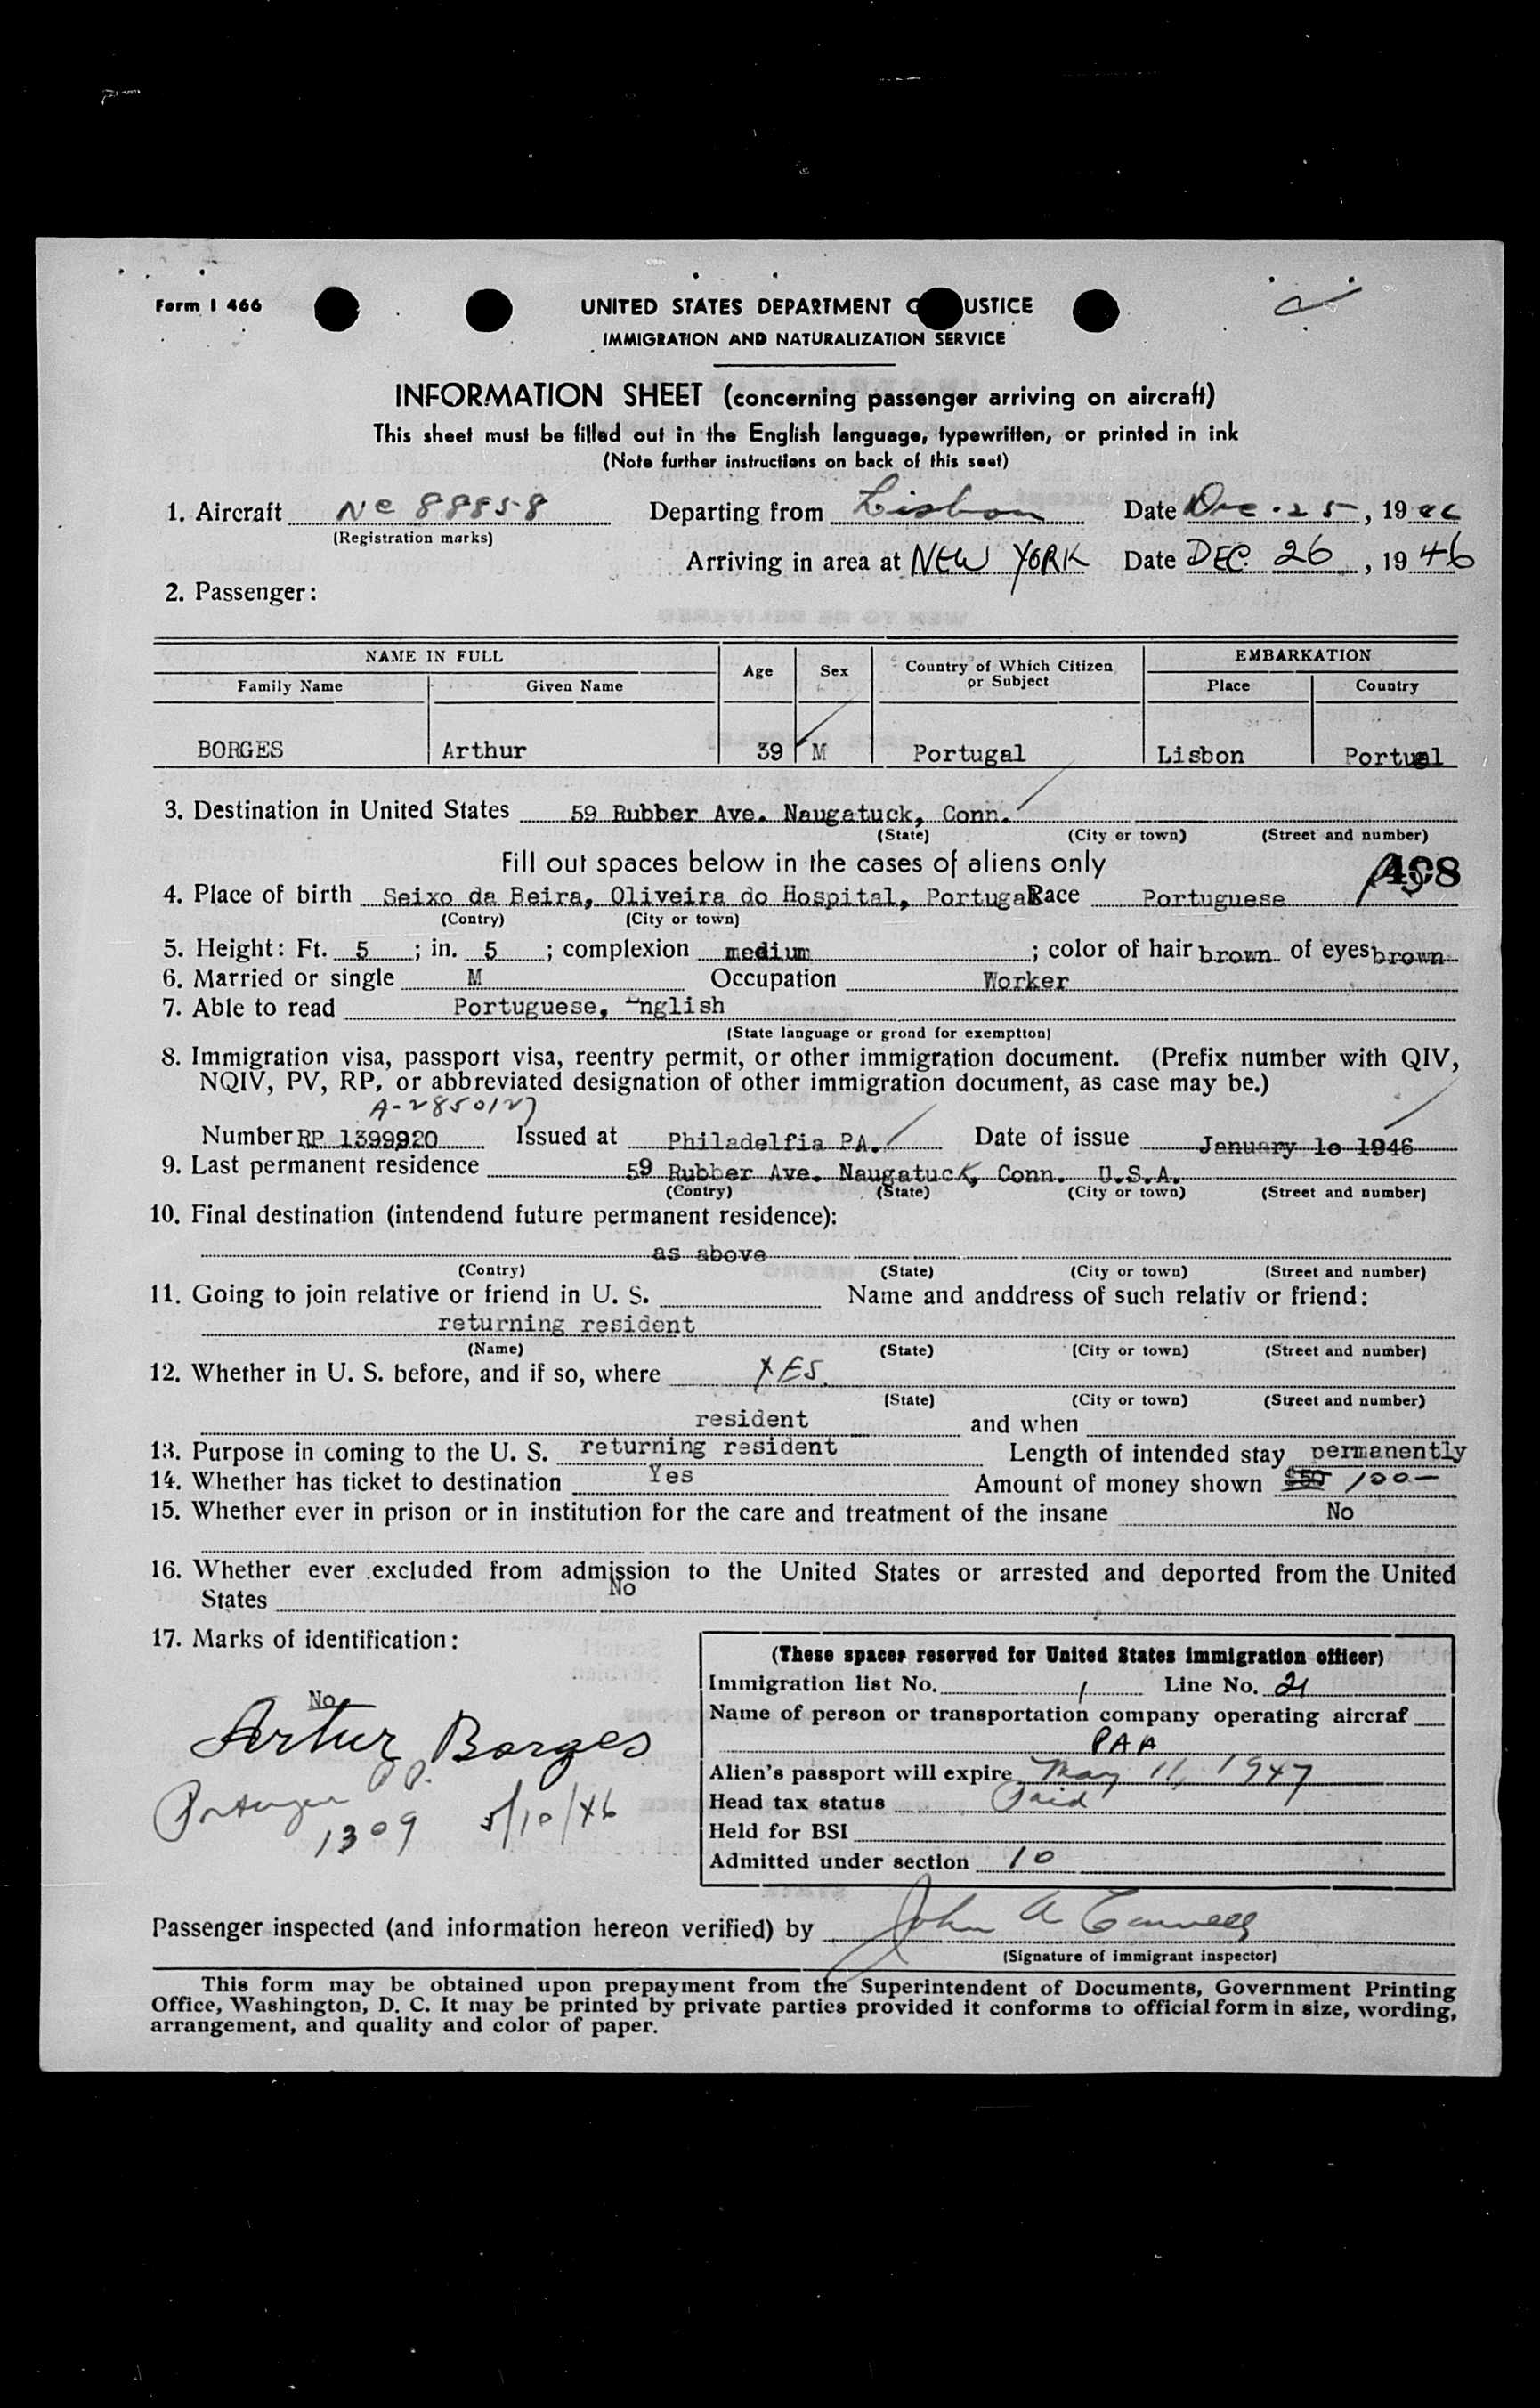 Form I 466
UNITED STATES DEPARTMENT O USTICE
IMMIGRATION AND NATURALIZATION SERVICE
INFORMATION SHEET (concerning passenger arriving on aircraft)
This sheet must be filled out in the English language, typewritten, or printed in ink
(Note further instructions on back of this seet)
1. Aircraft Nc 88858 Departing from Lisbon Date Dec. 25, 1946
(Registration marks)
Arriving in area at NEW YORK Date DEC. 26, 1946
2. Passenger:
NAME IN FULL Age Sex Country of Which Citizen or Subject EMBARKATION
Family Name Given Name Place Country
BORGES Arthur 39 M Portugal Lisbon Portugal
3. Destination in United States 59 Rubber Ave. Naugatuck, Conn.
(State) (City or town) (Street and number)
Fill out spaces below in the cases of aliens only
4. Place of birth Seixo da Beira, Oliveira do Hospital, Portugal Race Portuguese
(Contry) (City or town)
5. Height: Ft. 5 ; in. 5 ; complexion medium ; color of hair brown of eyes brown
6. Married or single M Occupation Worker
7. Able to read Portuguese, English
(State language or grond for exemptton)
8. Immigration visa, passport visa, reentry permit, or other immigration document. (Prefix number with QIV,
NQIV, PV, RP, or abbreviated designation of other immigration document, as case may be.)
A-2850127
Number RP 1399920 Issued at Philadelfia PA. Date of issue January 10 1946
9. Last permanent residence 59 Rubber Ave. Naugatuck, Conn. U.S.A.
(Contry) (State) (City or town) (Street and number)
10. Final destination (intendend future permanent residence):
as above
(Contry) (State) (City or town) (Street and number)
11. Going to join relative or friend in U. S. Name and anddress of such relativ or friend:
returning resident
(Name) (State) (City or town) (Street and number)
12. Whether in U. S. before, and if so, where YES.
(State) (City or town) (Street and number)
resident and when
13. Purpose in coming to the U. S. returning resident Length of intended stay permanently
14. Whether has ticket to destination Yes Amount of money shown $50 100-
15. Whether ever in prison or in institution for the care and treatment of the insane No
16. Whether ever excluded from admission to the United States or arrested and deported from the United
States No
17. Marks of identification:
No
Artur Borges
1309 5/10/46
(These spaces reserved for United States immigration officer)
Immigration list No. 1 Line No. 21
Name of person or transportation company operating aircraf
PAA
Alien's passport will expire May 11, 1947
Head tax status Paid
Held for BSI
Admitted under section 10
Passenger inspected (and information hereon verified) by John A
(Signature of immigrant inspector)
This form may be obtained upon prepayment from the Superintendent of Documents, Government Printing
Office, Washington, D. C. It may be printed by private parties provided it conforms to official form in size, wording,
arrangement, and quality and color of paper.